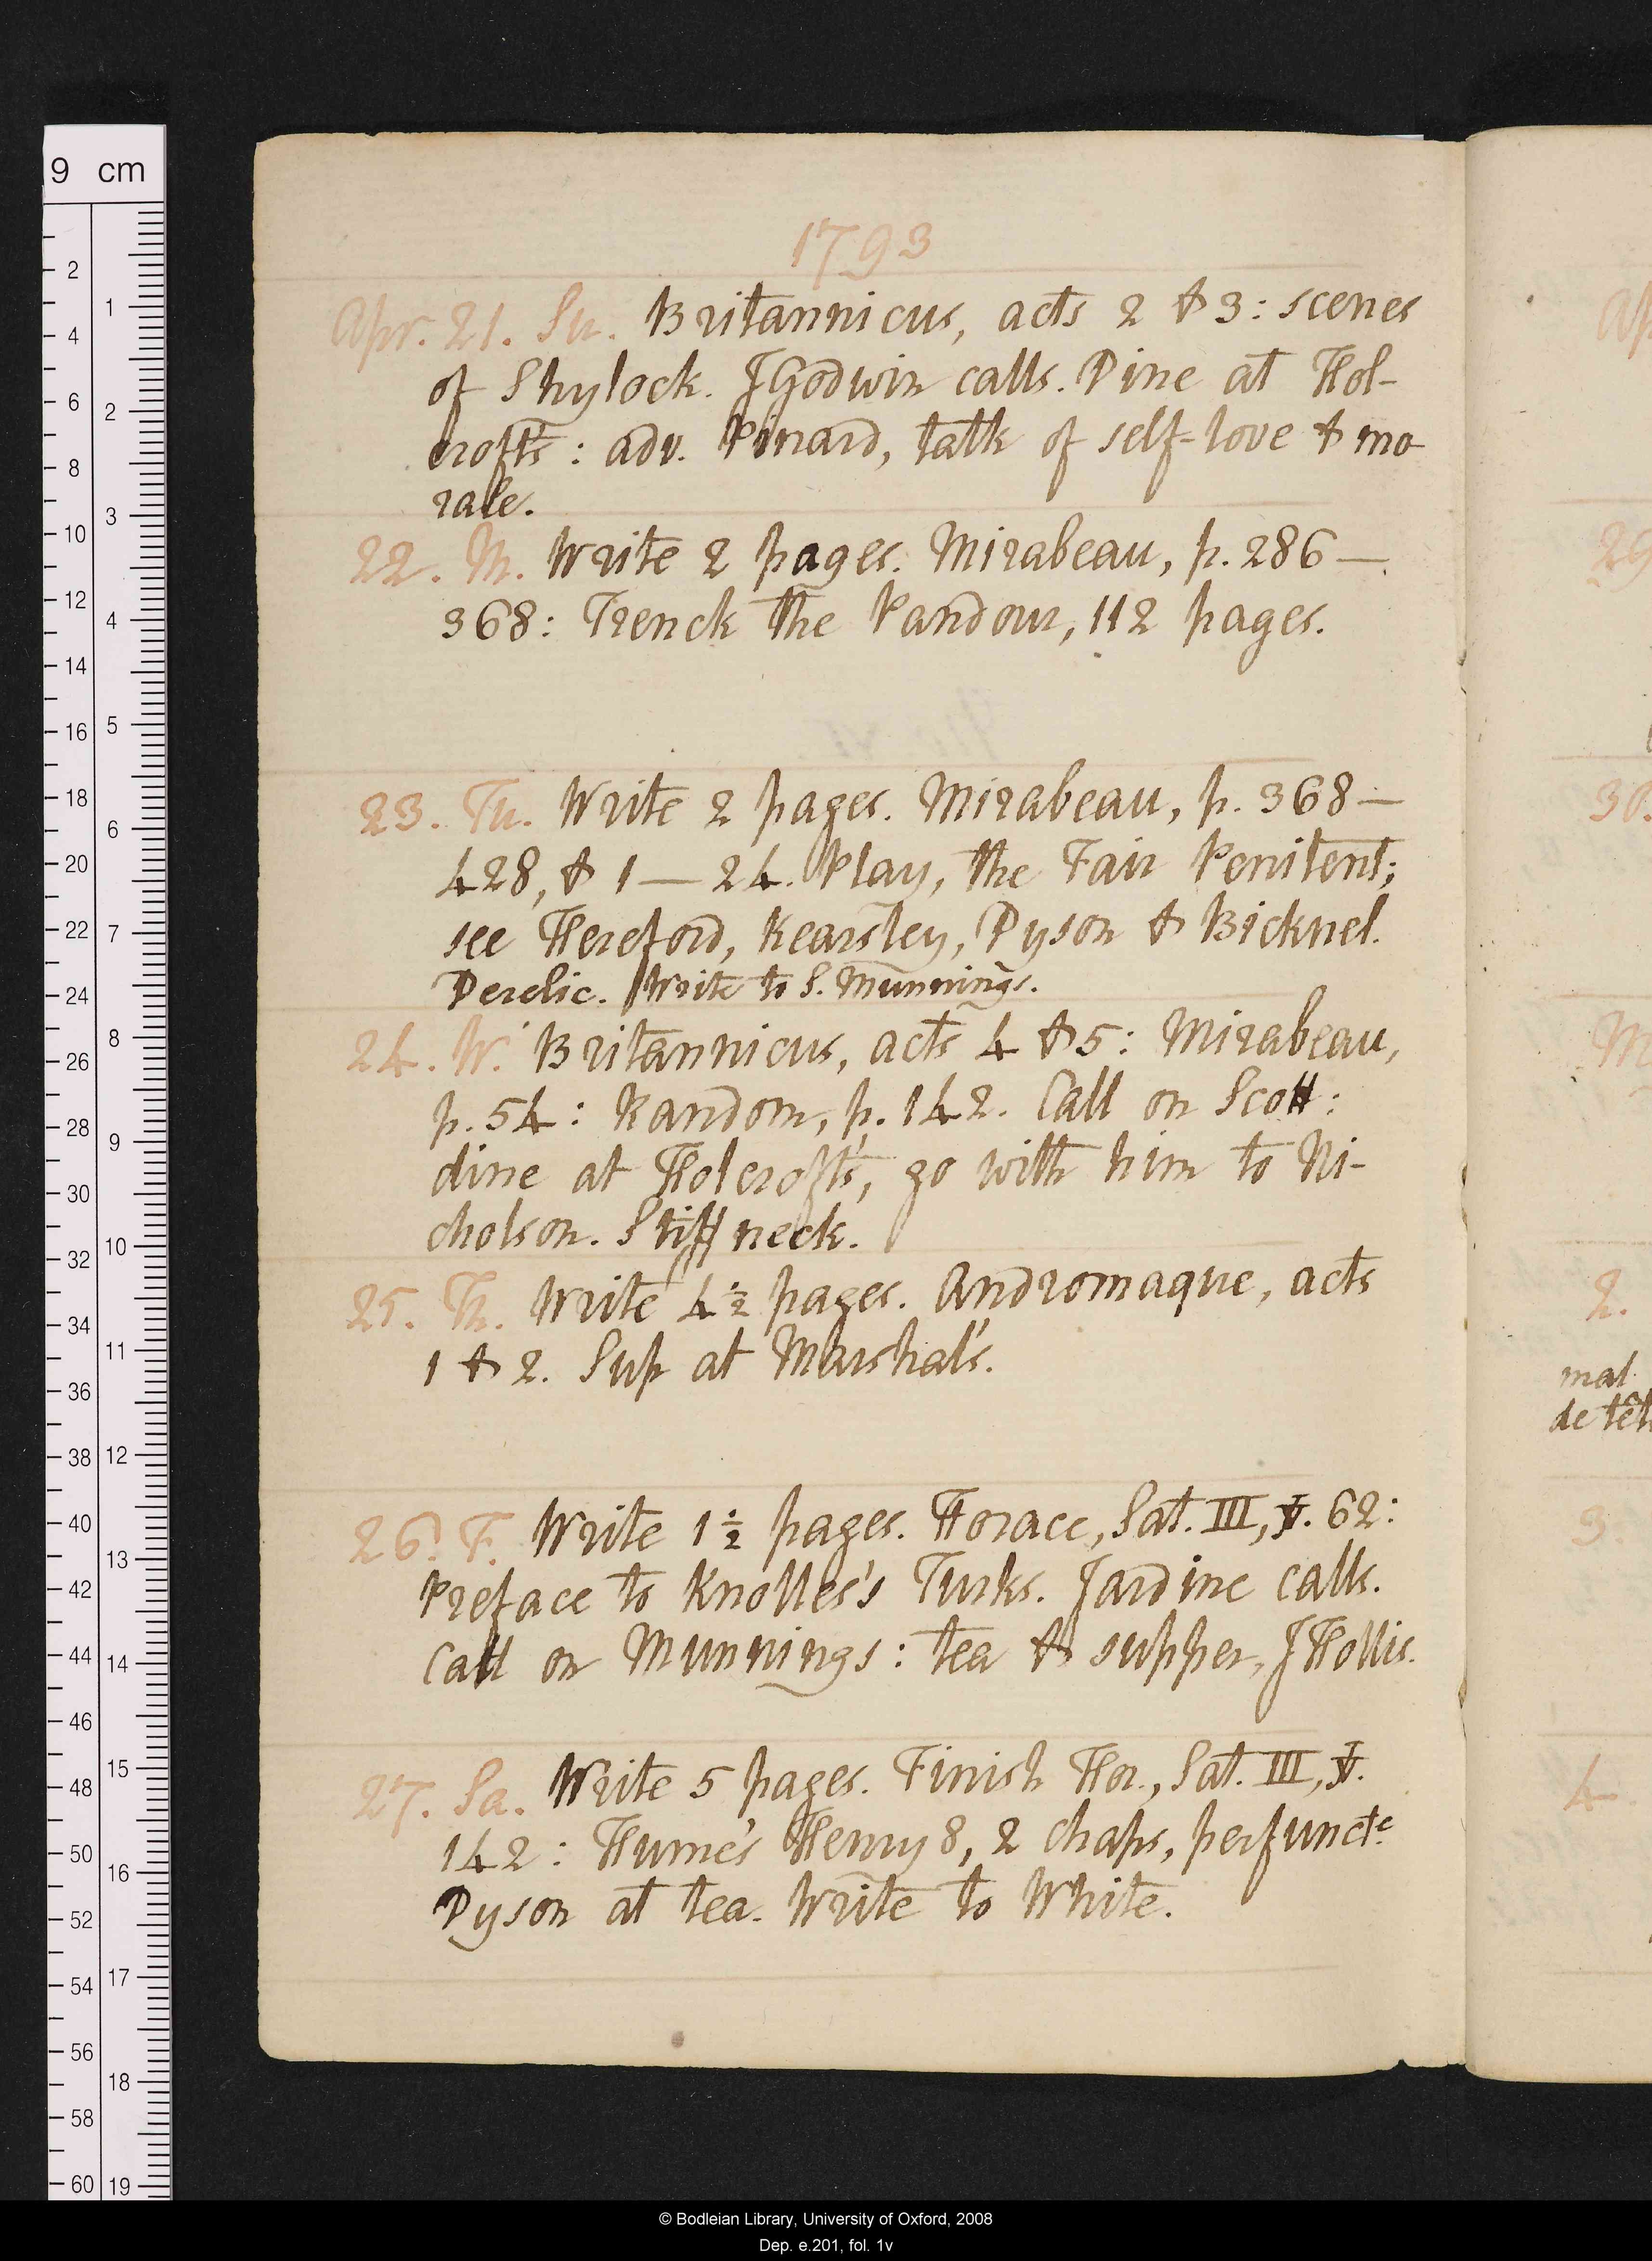 9 cm
1793
Apr. 21. Su. Britannicus, acts 2 & 3: scenes
of Shylock. JGodwin calls. Dine at Hol-
croft's: adv. Pinard, talk of self-love & mo
rale.
22. M. Write 2 pages. Mirabeau, p. 286—
368: Trenck the Pandour, 112 pages.
23. Tu. Write 2 pages. Mirabeau, p. 368—
428, & 1—24. Play, the Fair Penitent;
see Hereford, Kearsley, Dyson & Bicknel.
Derelic. Write to S. Munnings.
24. W. Britannicus, acts 4 & 5: Mirabeau,
p. 54: Random, p. 142. Call on Scott:
dine at Holcroft's, go with him to Ni-
cholson. Stiff neck.
25. Th. Write 4½ pages. Andromaque, acts
1 & 2. Sup at Marshal's.
26. F. Write 1½ pages. Horace, Sat. III, ỽ. 62:
Preface to Knolles's Turks. Jardine calls.
Call on Munnings: tea & supper, JHollis.
27. Sa. Write 5 pages. Finish Hor., Sat. III, ỽ.
142: Hume's Henry 8, 2 chaps, perfunctᵉ.
Dyson at tea. Write to White.
mal
de têt
© Bodleian Library, University of Oxford, 2008
Dep. e.201, fol. 1v